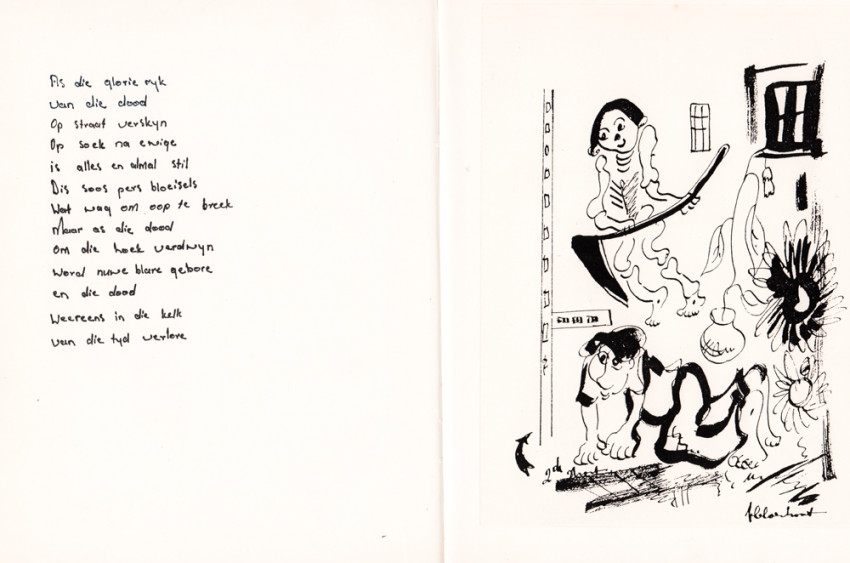 As die glorie ryk
van die dood
Op straat verskyn
Op soek na ewige
is alles en almal stil
Dis soos pers bloeisels
Wat wag om oop te breek
Maar as die dood
om die hoek verdwyn
Word nuwe blare gebore
en die dood
Weereens in die kelk
van die tyd verlore